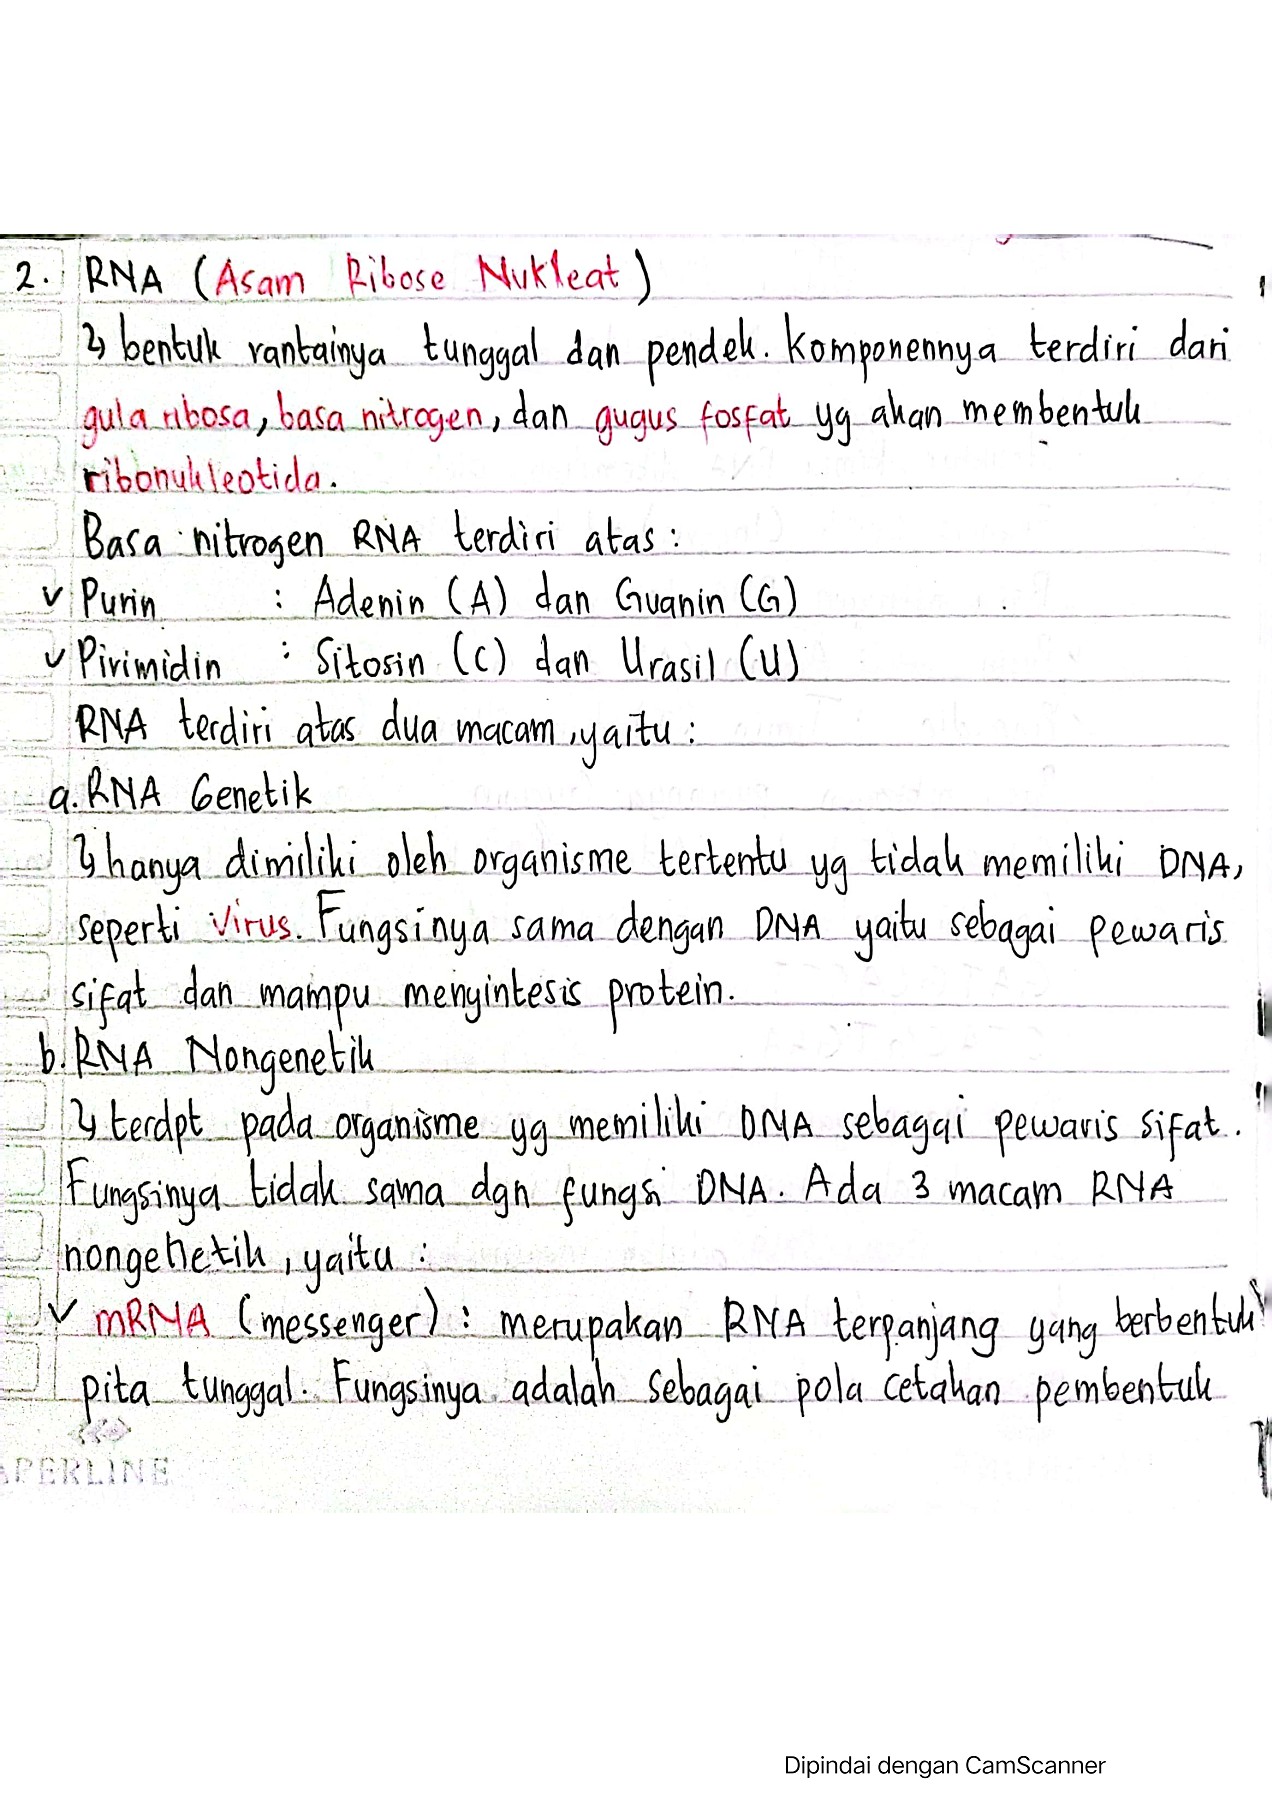 2. RNA (Asam Ribose Nukleat)
↳ bentuk rantainya tunggal dan pendek. Komponennya terdiri dari
gula ribosa, basa nitrogen, dan gugus fosfat yg akan membentuk
ribonukleotida.
Basa nitrogen RNA terdiri atas :
✓ Purin : Adenin (A) dan Guanin (G)
✓ Pirimidin : Sitosin (C) dan Urasil (U)
RNA terdiri atas dua macam, yaitu :
a. RNA Genetik
↳ hanya dimiliki oleh organisme tertentu yg tidak memiliki DNA,
seperti virus. Fungsinya sama dengan DNA yaitu sebagai pewaris
sifat dan mampu menyintesis protein.
b. RNA Nongenetik
↳ terdpt pada organisme yg memiliki DNA sebagai pewaris sifat.
Fungsinya tidak sama dgn fungsi DNA. Ada 3 macam RNA
nongenetik, yaitu :
✓ mRNA (messenger) : merupakan RNA terpanjang yang berbentuk
pita tunggal. Fungsinya adalah sebagai pola cetakan pembentuk
APERLINE
Dipindai dengan CamScanner